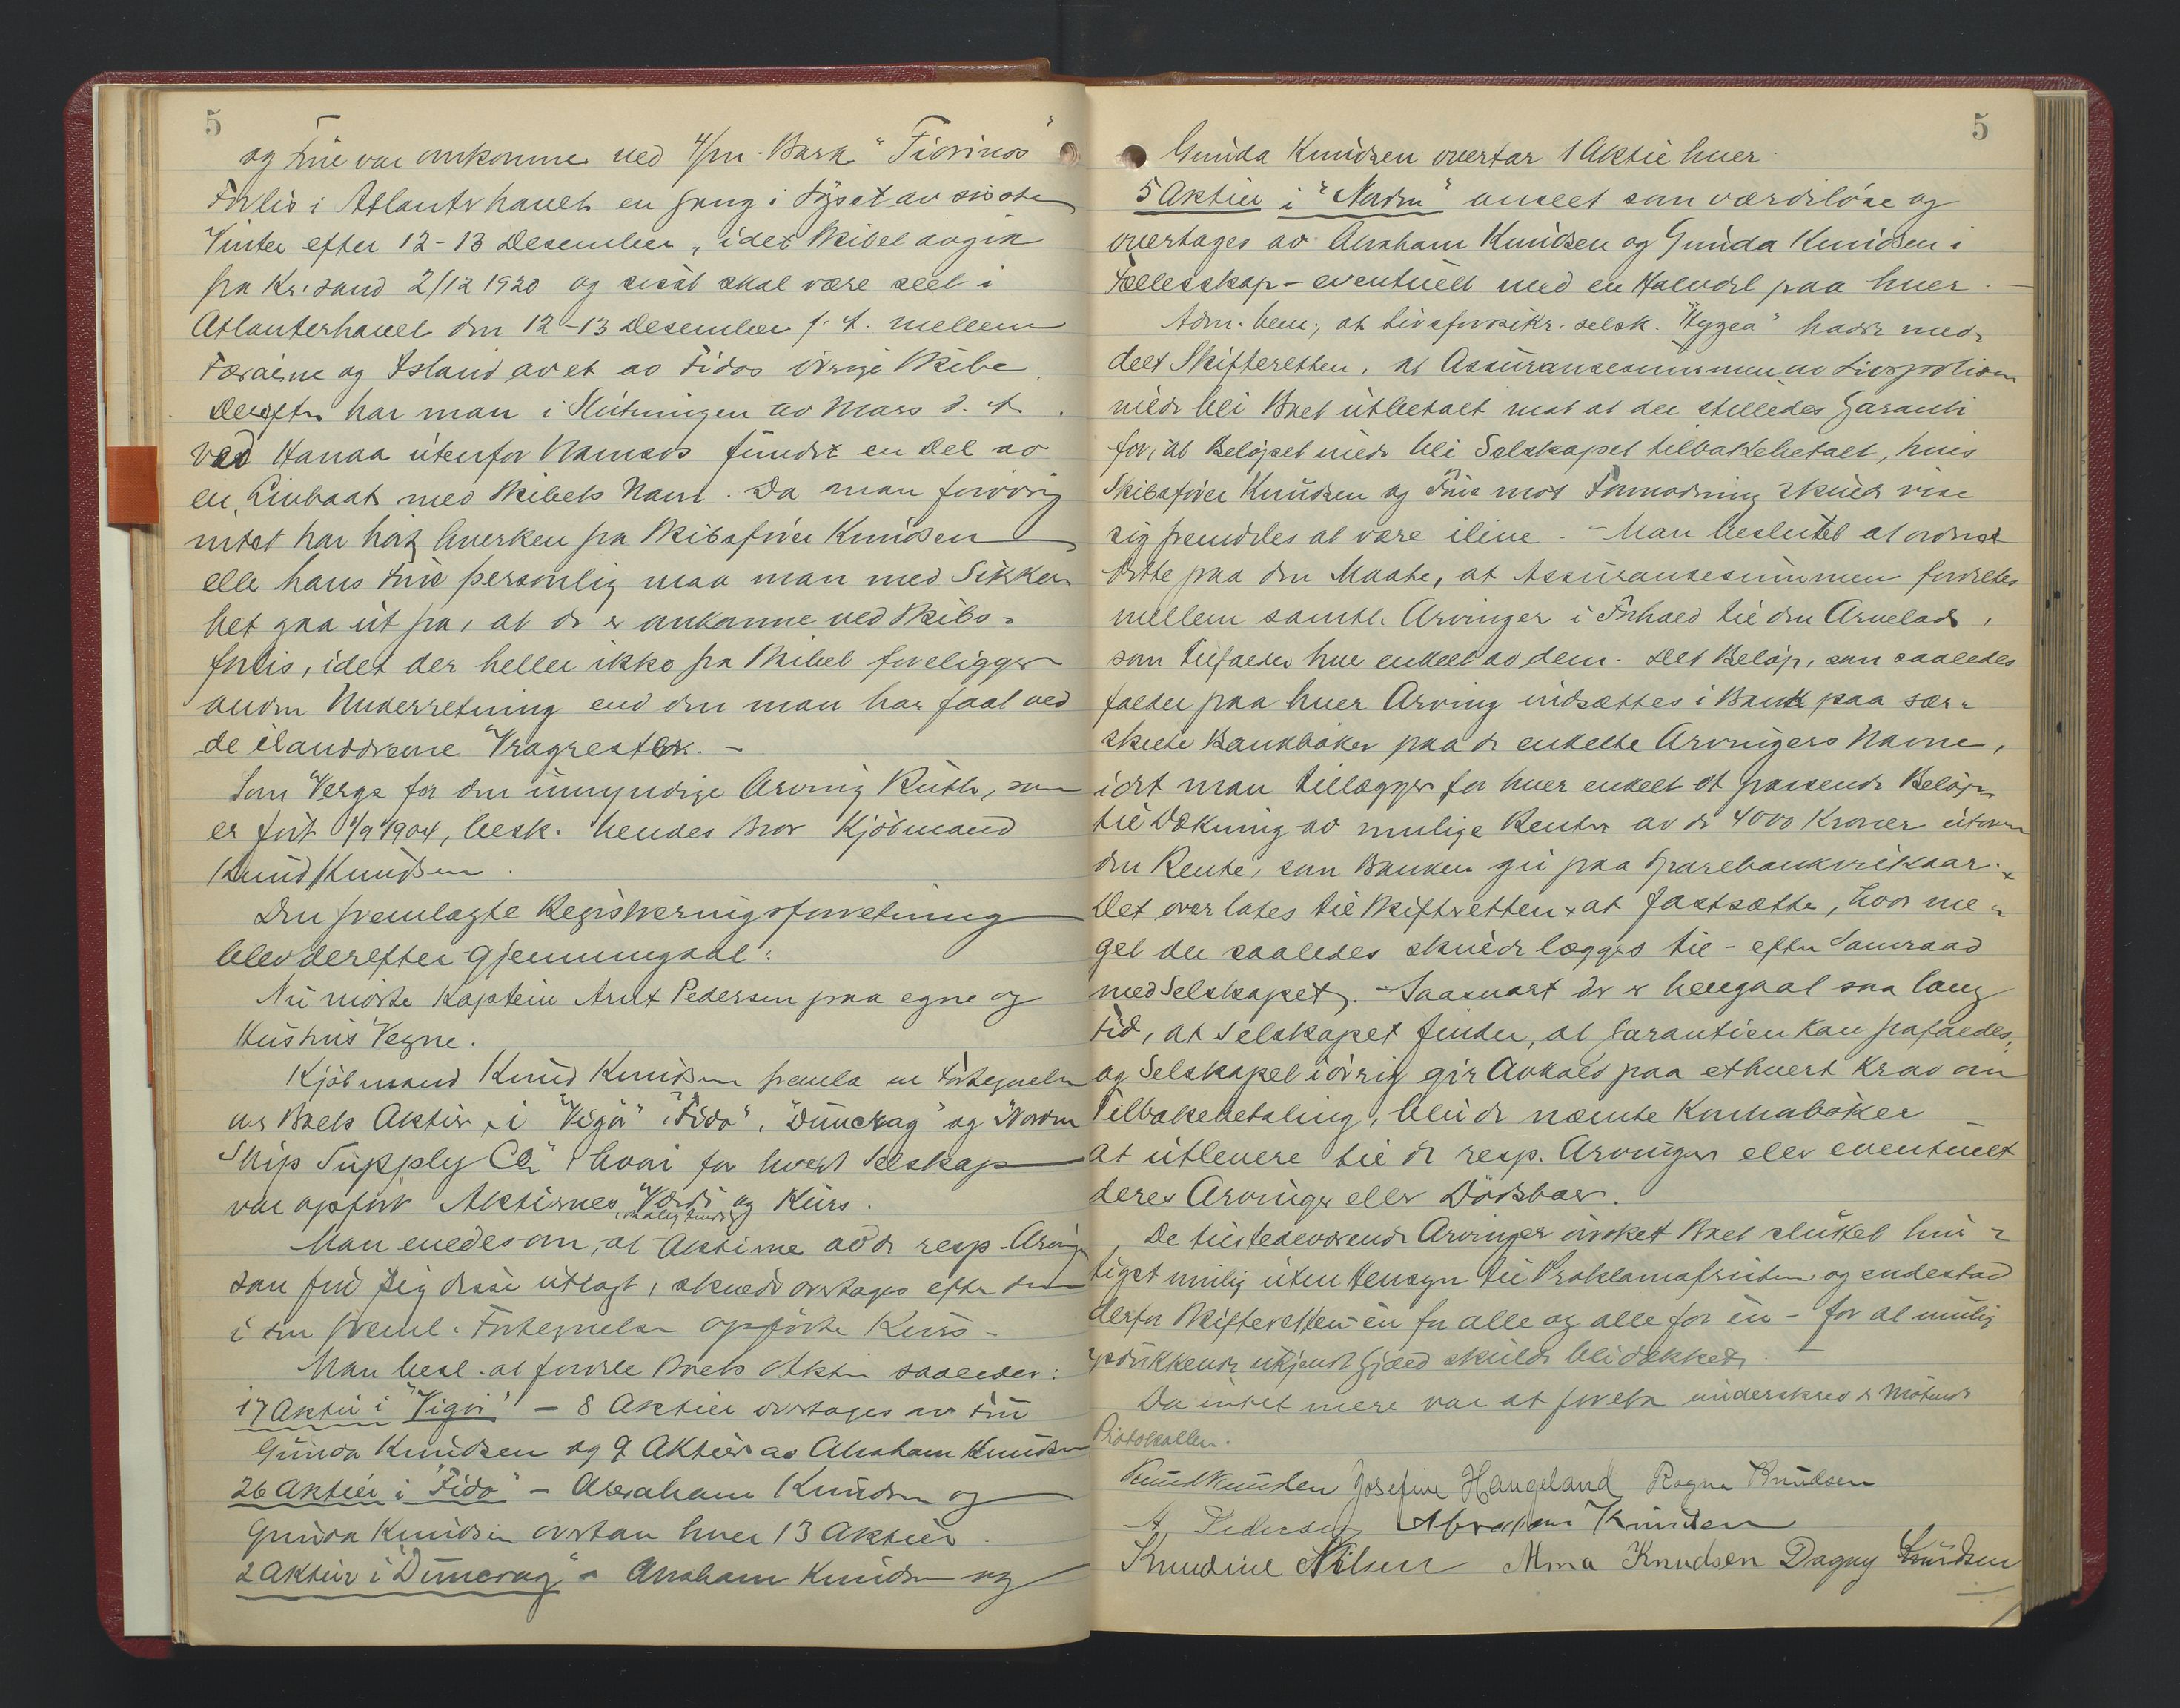 5
og Frue var omkomne ved 4/m. Bark "Fiorinos"
Forlis i Atlanterhavet en gang i Løpet av siste
Vinter efter 12-13 Desember, idet Skibet avgik
fra Kr.sand 2/12 1920 og sidst skal være seet i
Atlanterhavet den 12-13 Desember f. A. mellem
Færøerne og Island av et av Fidos øvrige Skibe.
Derefter har man i Slutningen av Mars d. A.
ved Hanaa utenfor Namsos fundet en Del av
en Livbaat med Skibets Navn. Da man forøvrig
intet har hørt hverken fra Skibsfører Knudsen
eller hans Frue personlig maa man med Sikker
het gaa ut fra, at de er omkomne ved Skibs-
forlis, idet der heller ikke fra Skibet foreligger
anden Underretning end den man har faat ved
de ilanddrevne Vragrester. -
Som Verge for den umyndige Arving Ruth, som
er født 1/9 1904, besk. hendes bror Kjøbmand
Knud Knudsen.
Den fremlagte Registreringsforretning
blev derefter gjennemgaat:
Nu møtte Kaptein Arnt Pedersen paa egne og
Hustrus Vegne.
Kjøbmand Knud Knudsen fremla en Fortegnelse
over Boets Aktier i "Vigør" "Fido", "Duncrag" og "Norden
Ship Supply Co" hvori for hvert Selskap
var opført Aktiernes Værdi og Kurs.
Man enedes om, at Aktierne av de resp. Arvinger
som fik sig disse utlagt, skulde overtages efter den
i den freml. Fortegnelse opførte Kurs -
Man besl. at fordele Boets Aktier saaledes:
17 Aktier i "Vigør" - 8 Aktier overtages av Fru
Gunda Knudsen og 9 Aktier av Abraham Knudsen
26 Aktier i "Fido" - Abraham Knudsen og
Gunda Knudsen overtar hver 13 Aktier.
2 Aktier i Duncrag" - Abraham Knudsen og
5
Gunda Knudsen overtar 1 Aktie hver.
5 Aktier i "Norden" anseet som værdiløse og
overtages av Abraham Knudsen og Gunda Knudsen i
Fællesskap - eventuelt med en Halvdel paa hver. -
Adm. bem., at livsforsikr. selsk. "Hygea" hadde med-
delt Skifteretten, at Assuransesummen av Livspolisen
vilde bli Boet utbetalt mot at der stilledes Garanti
for, at Beløpet vilde bli Selskapet tilbakebetalt, hvis
Skibsfører Knudsen og Frue mot Formodning skulde vise
sig fremdeles at være ilive. - Man besluttet at ordne
dette paa den Maate, at Assuransesummen fordeles
mellem samtl. Arvinger i Forhold til den Arvelod,
som tilfalder hver enkelt av dem. Det Beløp, som saaledes
falder paa hver Arving indsættes i Bank paa sær-
skilte Bankbøker paa de enkelte Arvingers Navne,
idet man tillægger for hver enkelt et passende Beløp
til Dækning av mulige Renter av de 4000 Kroner utover
den Rente, som Banken gir paa Sparebankvilkaar. -
Det overlates til Skifteretten at fastsætte, hvor me-
get der saaledes skulde lægges til - efter Samraad
med Selskapet. - Saasnart der er hengaat saa lang
Tid, at Selskapet finder, at Garantien kan frafaldes,
og Selskapet iøvrig gir Avkald paa ethvert Krav om
Tilbakebetaling, blir de nævnte Kontrabøker
at utlevere til de resp. Arvinger eller eventuelt
deres Arvinger eller Dødsboer.
De tilstedeværende Arvinger ønsket Boet sluttet hur-
tigst mulig uten Hensyn til Proklamafristen og endestod
derfor Skifteretten en for alle og alle for en - for at mulig
opdukkende ukjendt Gjæld skulde bli dækket.
Da intet mere var at foreta underskrev de Møtende
Protokollen.
Knud Knudsen Josefine Haugeland Ragna Knudsen
A. Pedersen Abraham Knudsen
Knudine Nilsen Alma Knudsen Dagny Knudsen